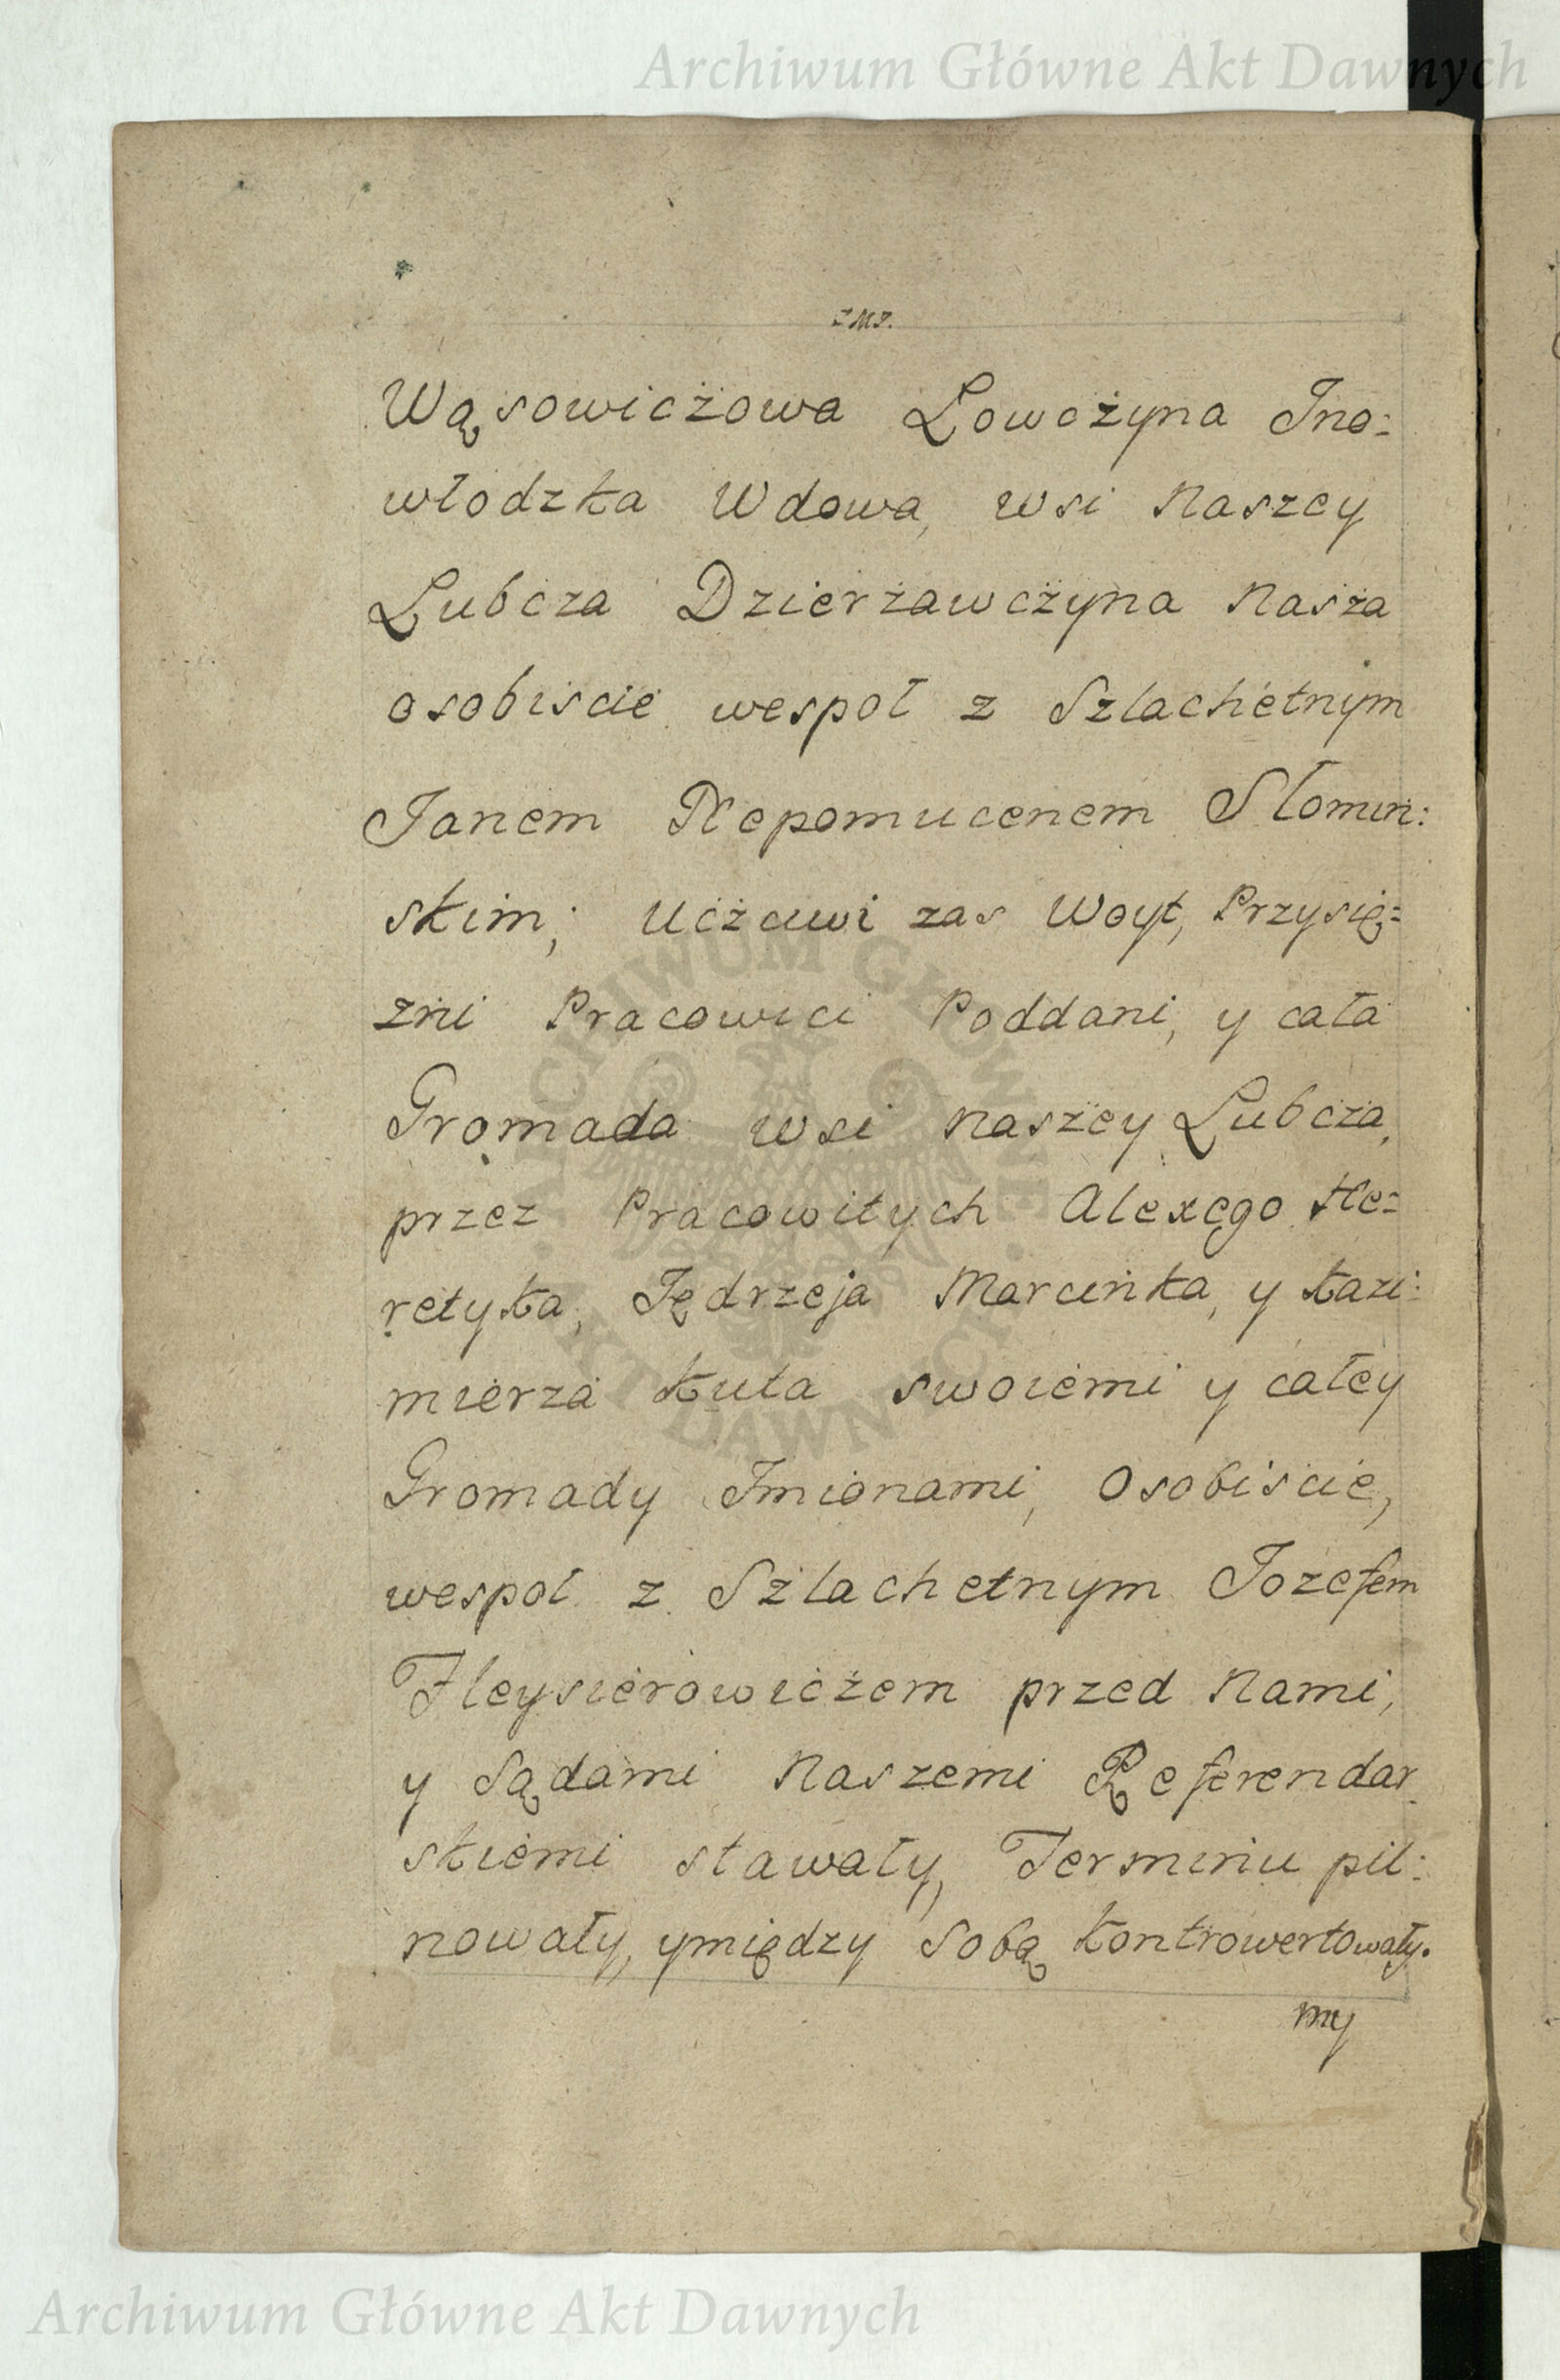 Archiwum Główne Akt Dawnych
Wąsowiczowa Łowczyna Ino:
włodzka Wdowa, wsi Naszey
Lubcza Dzierżawczyna Nasza
osobiscie wespoł z Szlachetnym
Janem Nepomucenem Słomin:
skim; Uczciwi zas Woyt, Przysię:
zni Pracowici Poddani, y cała
Gromada wsi Naszey Lubcza,
przez Pracowitych Alexego He:
retyka, Jędrzeja Marcinka, y Kazi:
mierza Kuta swoiemi y całey
Gromady Imionami, Osobiście,
wespoł z Szlachetnym Jozefem
Fleysierowiczem przed Nami,
y Sądami Naszemi Referendar
skiemi stawały, Terminu pil:
nowały, y między Sobą kontrowertowały.
my
ARCHIWUM GŁÓWNE
AKT DAWNYCH
Archiwum Główne Akt Dawnych